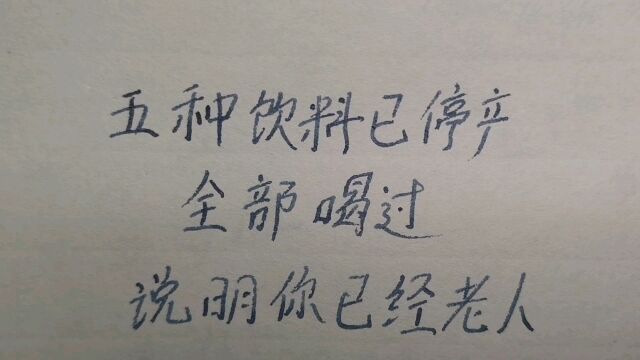 五种饮料已停产
全部喝过
说明你已经老人